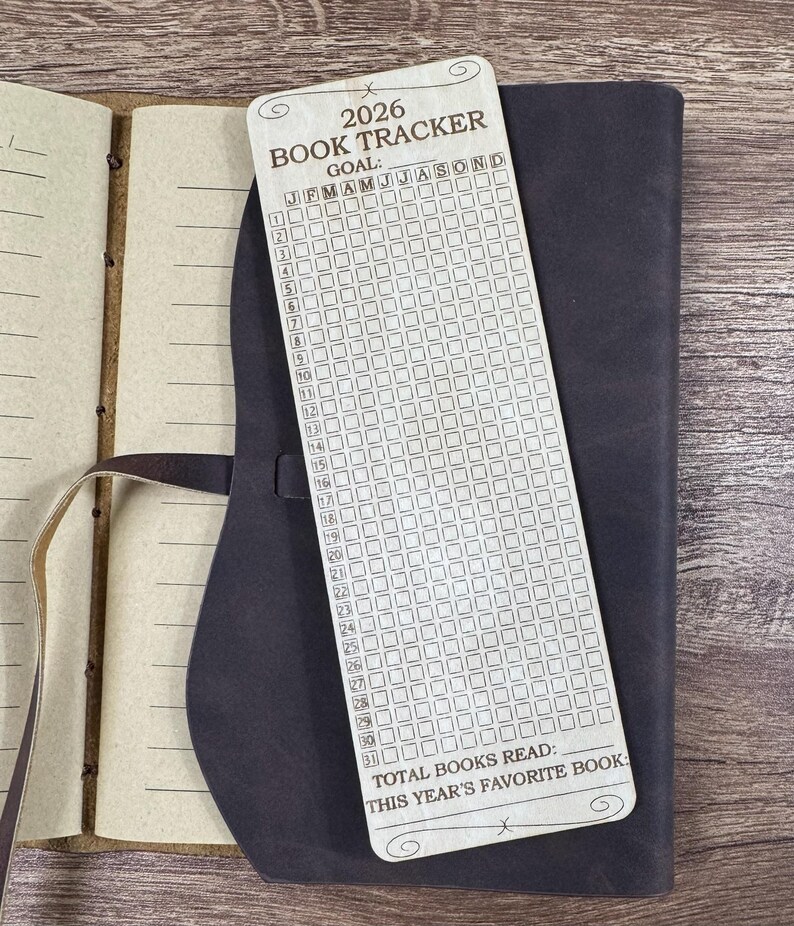 2026
BOOK TRACKER
GOAL:
J F M A M J J A S O N D
1
2
3
4
5
6
7
8
9
10
11
12
13
14
15
16
17
18
19
20
21
22
23
24
25
26
27
28
29
30
31
TOTAL BOOKS READ:
THIS YEAR'S FAVORITE BOOK: